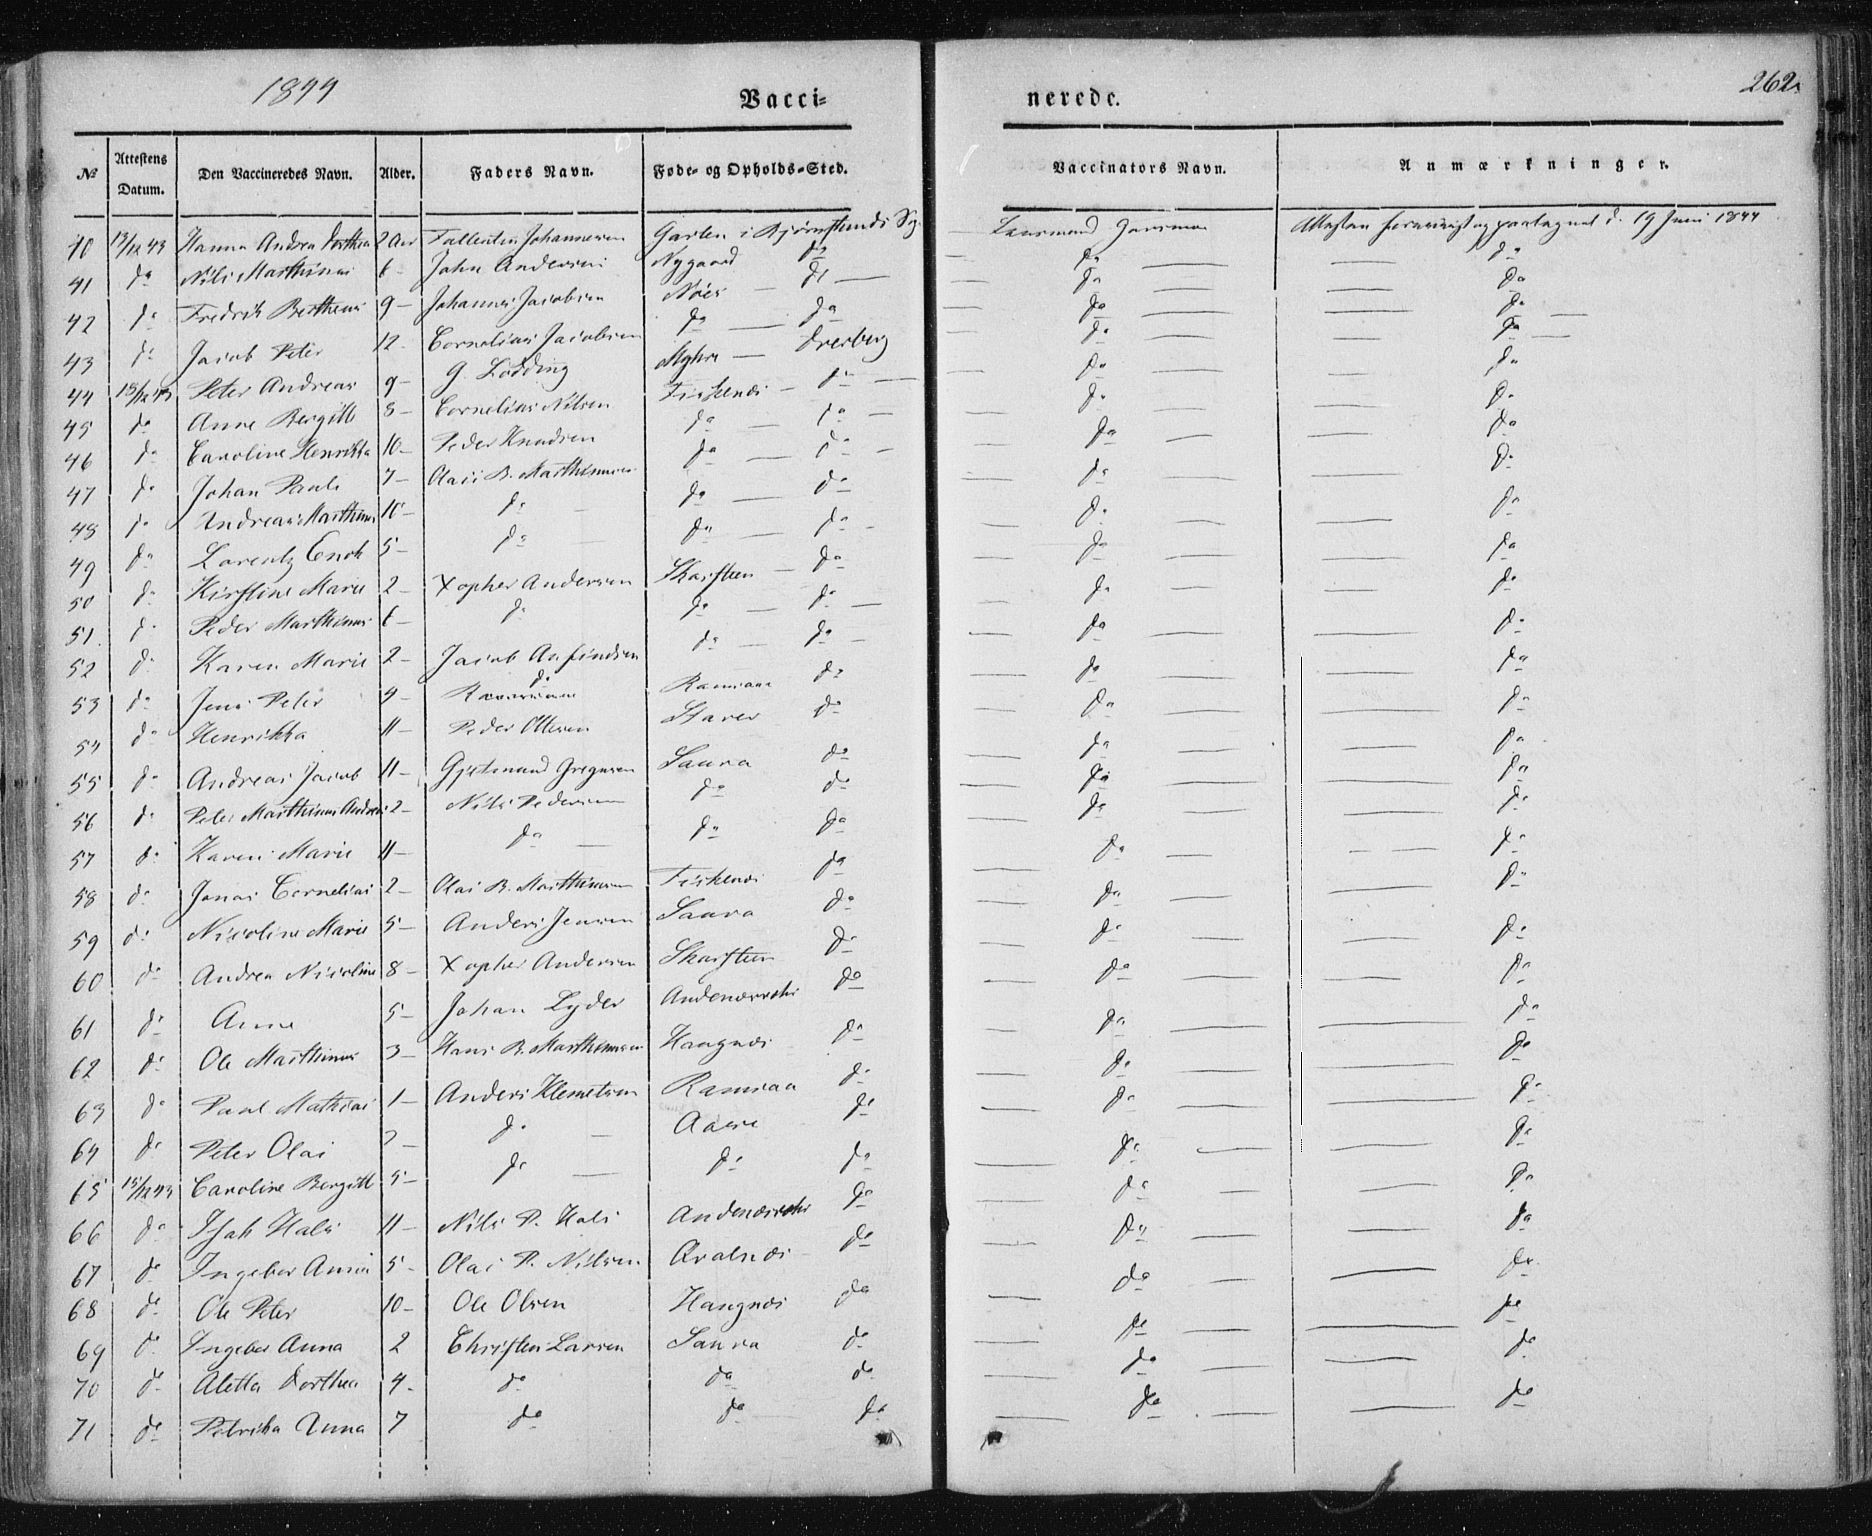 1844 Vacci= nerede. 262.
№ Attestens Datum. Den Vaccineredes Navn. Alder. Faders Navn. Føde- og Opholds-Sted. Vaccinators Navn. Anmærkninger.
40 13/12 43 Hanna Andrea Dorthea 2 Aar Johannesen i d. 19 Juni 1844
41 do Nils Marthinus 6 - John Andersen Nygaard do do do
42 do Fredrik Bertheus 9 - Johannes Jacobsen Nøes - do - do do
43 do Jacob Peter 12 - Cornelius Jacobsen do - do do do
44 15/12 43 Peter Andreas 9 - G. Lødding Myhre - Dverberg do do
45 do Anne Bergitte 3 - Cornelius Nilsen Fiskenes - do - do do
46 do Caroline Henrikka 10 - Peder Knudsen do - do - do do
47 do Johan Paul 7 - Olai B. Marthinusen do - do - do do
48 do Andreas Marthinus 10 - do - do - do do do
49 do Lorentz Enok 5 - do - do - do - do do
50 do Kirstine Marie 2 - Xopher Andersen Skarsteen - do do do
51. do Peder Marthinus 6 - do do - do - do do
52 do Karen Marie 2 - Jacob Anfindsen do - do - do do
53 do Jens Peter 9 - do Ramsaa do do do
54 do Henrikka 11 - Peder Ottesen Staver do do do
55 do Andreas Jacob 11 - Gjertmund Gregusen Saura do do do
56 do Peter Marthinus Andreas 2 - Nils Pedersen do do do do
57 do Karen Marie 11 - do - do do do do
58 do Jonas Cornelius 2 - Olai B. Marthinusen Fiskenes do do do
59 do Nicoline Marie 5 - Anders Jensen Saura do do do
60 do Andrea Nicoline 8 - Xopher Andersen Skarsteen do do do
61 do Anne 5 - Johan Lyder do do do
62 do Ole Marthinus 3 - Hans B. Marthinusen Haugnes do do do
63 do Paul Mathias 1 - Anders Klemetsen Ramsaa do do do
64 do Peter Olai 2 - do - Aase do do do
65 15/12 43 Caroline Bergitte 5 - do - do do do do
66 do Isak Hals 11 - Nils P. Hals do do do
67 do Ingebor Anna 5 - Olai P. Nilsen do do do
68 do Ole Peter 10 - Ole Olsen Haugnes do do do
69 do Ingebor Anna 2 Christen Larsen Saura do do do
70 do Aletta Dorthea 4 - do do do do do
71 do Petrikka Anna 7 do do do do do